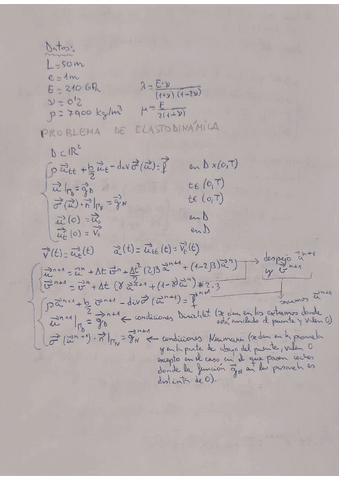 Datos:
L = 50m
e = 1m
E = 210 GPa λ = E·ν / (1+ν)(1-2ν)
ν = 0'2 μ = E / 2(1+ν)
ρ = 7900 kg/m³
PROBLEMA DE ELASTODINÁMICA
D ⊂ ℝ²
ρ u⃗tt + b/2 u⃗t - div σ⃗(u⃗) = f⃗ en D×(0,T)
u⃗|Γ_D = g⃗_D t∈(0,T)
σ⃗(u⃗)·n⃗|Γ_N = g⃗_N t∈(0,T)
u⃗(0) = u⃗₀ en D
u⃗t(0) = v⃗₀ en D
v⃗(t) = u⃗t(t) a⃗(t) = u⃗tt(t) = v⃗t(t)
u⃗ⁿ⁺¹ = u⃗ⁿ + Δt v⃗ⁿ + Δt²/2 (2β a⃗ⁿ⁺¹ + (1-2β) a⃗ⁿ) → despejo u⃗ⁿ⁺¹
v⃗ⁿ⁺¹ = v⃗ⁿ + Δt (γ a⃗ⁿ⁺¹ + (1-γ) a⃗ⁿ) y v⃗ⁿ⁺¹
ρ a⃗ⁿ⁺¹ + b/2 v⃗ⁿ⁺¹ - div σ⃗(u⃗ⁿ⁺¹) = f⃗ⁿ⁺¹ → a⃗ⁿ⁺¹
u⃗ⁿ⁺¹|Γ_D = g⃗_Dⁿ⁺¹ ← condiciones Dirichlet (se dan en los extremos donde
está anclado el puente y valen 0)
σ⃗(u⃗ⁿ⁺¹)·n⃗|Γ_N = g⃗_Nⁿ⁺¹ ← condiciones Neumann (se dan en la
y en la parte de abajo del puente, valen 0
excepto en el caso en el que pasen coches
donde la función g⃗_N en la es
distinta de 0).